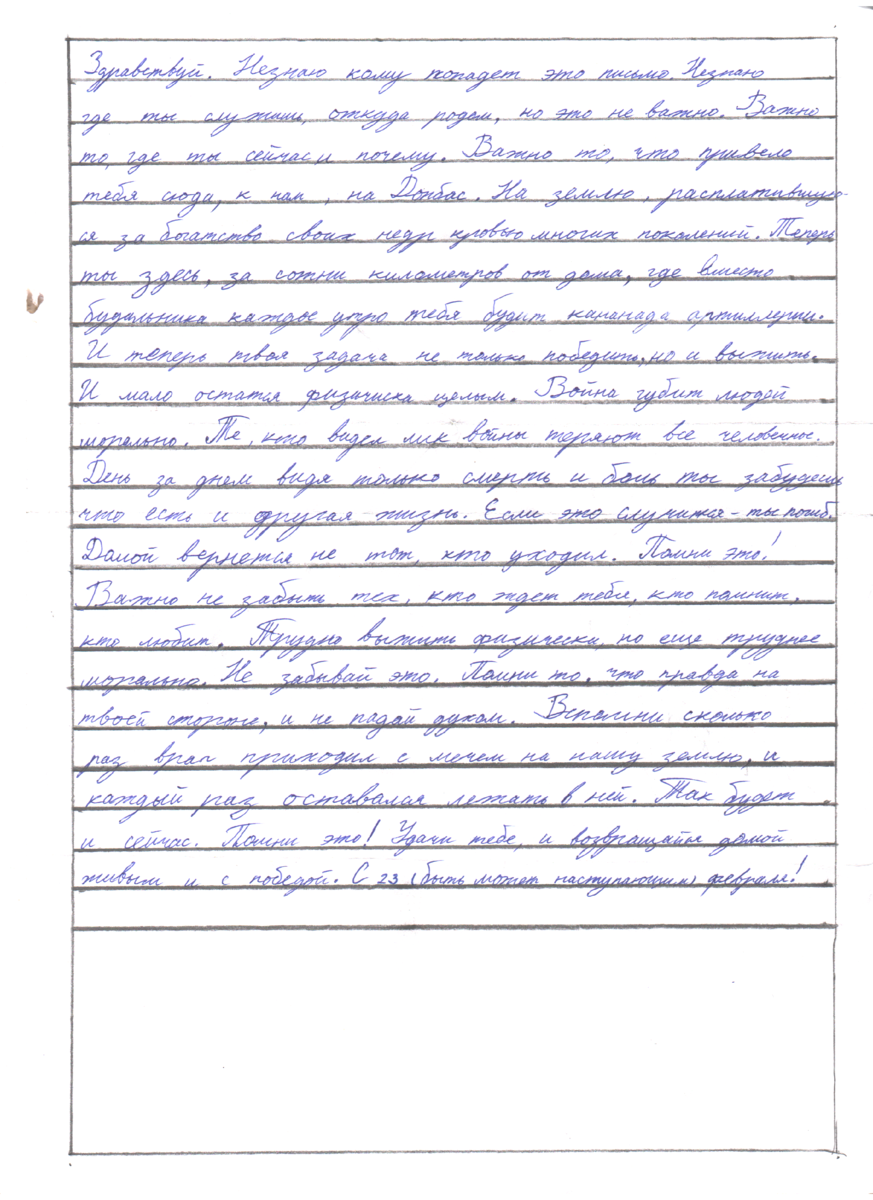 Здравствуй. Незнаю кому попадет это письмо. Незнаю
где ты служишь, откуда родом, но это не важно. Важно
то, где ты сейчас и почему. Важно то, что привело
тебя сюда, к нам, на Донбас. На землю, расплатившую-
ся за богатство своих недр кровью многих поколений. Теперь
ты здесь, за сотни километров от дома, где вместо
будильника каждое утро тебя будит кананада артиллерии.
И теперь твоя задача не только победить, но и выжить.
И мало остатся физически целым. Война губит людей
морально. Те, кто видел лик войны теряют все человечное.
День за днем видя только смерть и боль ты забудешь
что есть и другая жизнь. Если это случится - ты погиб.
Домой вернется не тот, кто уходил. Помни это!
Важно не забыть тех, кто ждет тебя, кто помнит,
кто любит. Трудно выжить физически, но еще труднее
морально. Не забывай это. Помни то, что правда на
твоей стороне, и не падай духом. Вспомни сколько
раз враг приходил с мечем на нашу землю, и
каждый раз оставался лежать в ней. Так будет
и сейчас. Помни это! Удачи тебе, и возвращайся домой
живым и с победой. С 23 (быть может наступающим) февраля!